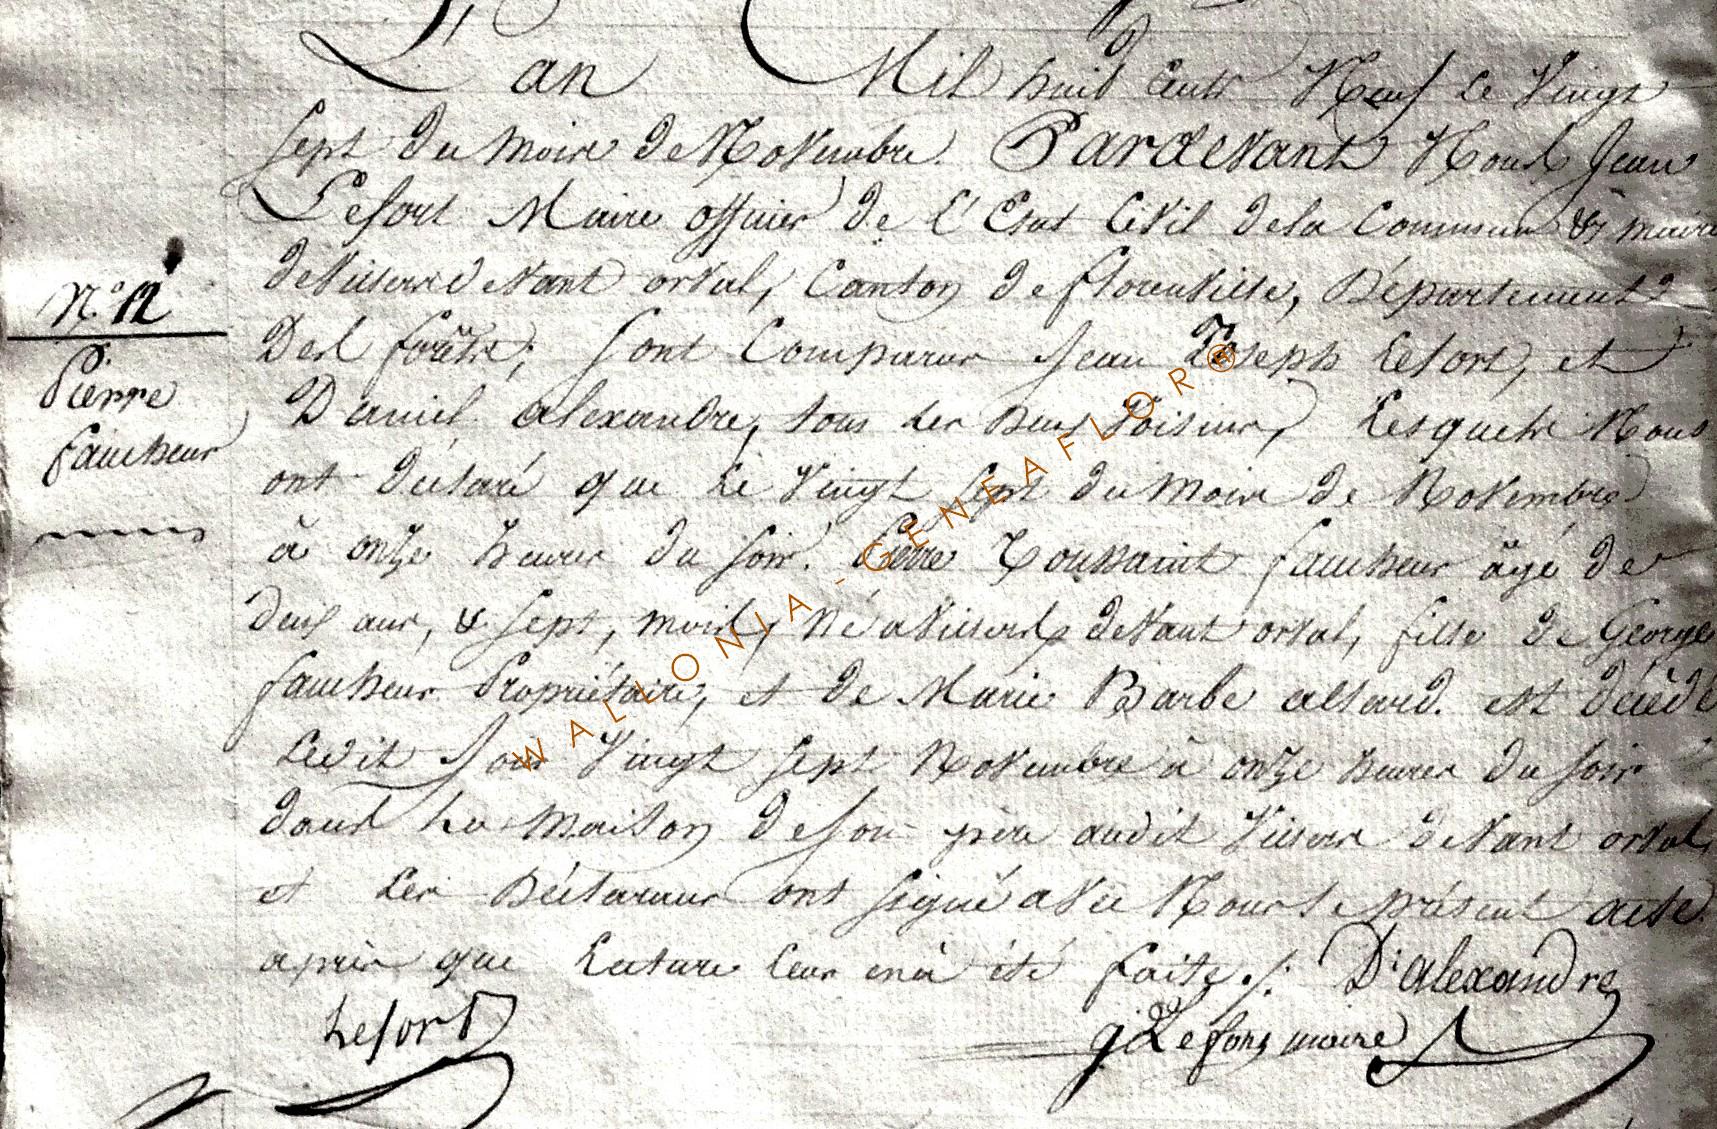 L'an Mil huit Cents Neuf Le Vingt
sept du Mois de Novembre. Pardevant Nous Jean
Lefort Maire officier de L'Etat Civil de la Commune & mairie
de Villers devant orval, Canton de florenville, Département
Des forêts; sont Comparus Jean Joseph Lefort, et
Daniel alexandre, tous les deux Voisins, Lesquels Nous
ont déclaré que Le Vingt sept du Mois de Novembre
à onze heures du soir. Pierre Toussaint faucheur âgé de
deux ans, & sept, mois, Né à Villers devant orval, fils de George
faucheur Propriétaire, et de Marie Barbe allard. est décédé
Ledit Jour Vingt sept Novembre à onze heures du soir
dans La Maison de son père audit Villers devant orval,
et Les Déclarants ont signé avec Nous Le présent acte
après que Lecture leur en à été faite ./. D: alexandre
Lefort
g Lefort maire
N.° 12
Pierre
faucheur
WALLONIA-GENEAFLOR®